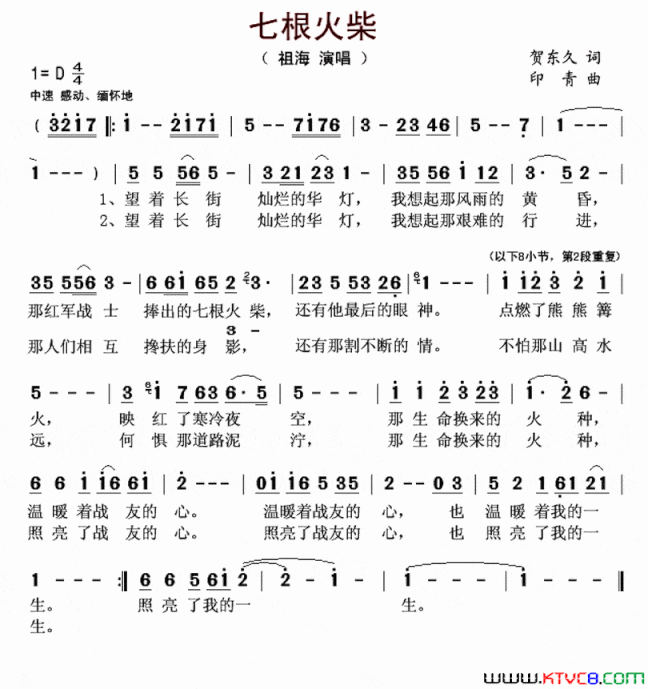 七根火柴
( 祖海 演唱 )
1= D 4/4
贺东久 词
中速 感动、缅怀地
印 青 曲
( 3217 |: 1 - - 2171 | 5 - - 7176 | 3 - 23 46 | 5 - - 7 | 1 - - - |
1 - - - ) | 5 5 56 5 - | 3 21 23 1 - | 35 56 1 12 | 3 · 5 2 - |
1、望着长街 灿烂的华灯， 我想起那风雨的 黄 昏，
2、望着长街 灿烂的华灯， 我想起那艰难的 行 进，
(以下8小节，第2段重复)
35 556 3 - | 6 61 65 2 3 · | 23 5 53 26 | 1 - - - | 1 12 3 2 1 |
那红军战 士 捧出的七根火 柴， 还有他最后的眼 神。 点燃了熊熊篝
3 -
那人们相 互 搀扶的身 影， 还有那割不断的 情。 不怕那山 高水
5 - - - | 3 1 7 63 6 · 5 | 5 - - - | 1 1 2 3 23 | 1 · 2 6 - |
火， 映 红了寒冷夜 空， 那 生 命换来的 火 种，
远， 何 惧那道路泥 泞， 那 生 命换来的 火 种，
6 6 1 16 61 | 2 - - - | 01 16 5 35 | 2 - 0 3 | 5 2 161 21 |
温 暖 着战 友的 心。 温暖着战友的 心， 也 温 暖 着我的一
照 亮 了战 友的 心。 照亮了战友的 心， 也 照 亮 了我的一
1 - - - :| 6 6 5 561 2 | 2 - 2 - | 1 - - - | 1 - - - | 1 - - - ||
生。 照 亮 了我的一 生。
生。
www.KTVC8.com